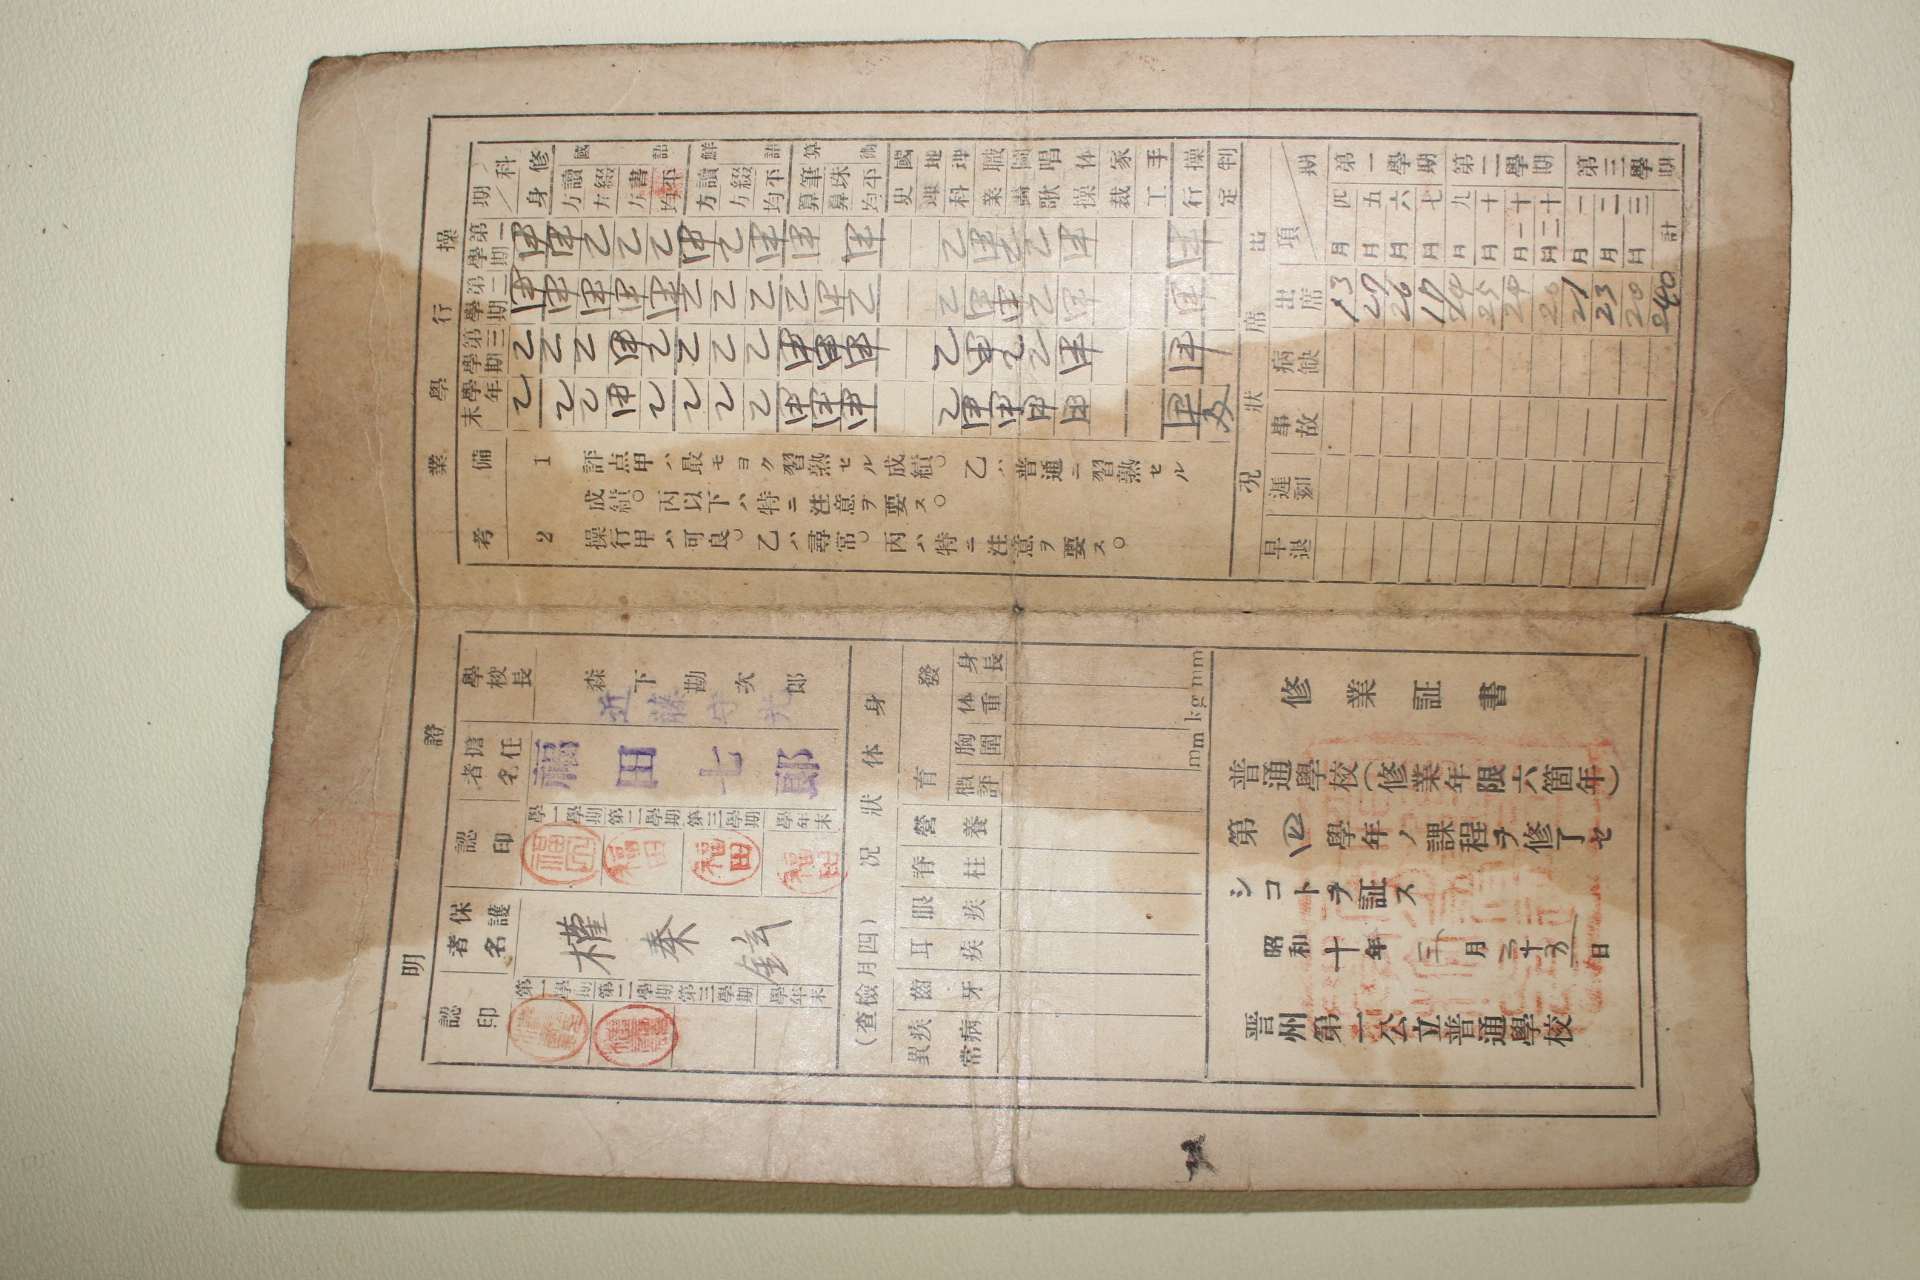 操行學業
期／科
修身
國語
讀方
綴方
書方
平均
鮮語
讀方
綴方
平均
算術
筆算
珠算
平均
國史
地理
理科
職業
圖畵
唱歌
体操
家裁
手工
操行
判定
第一學期
甲 甲 乙 乙 乙 甲 乙 甲 甲 甲 乙 甲 乙 乙 甲 甲
第二學期
甲 甲 甲 甲 甲 乙 乙 乙 乙 甲 乙 乙 甲 甲 乙 甲 甲
第三學期
乙 乙 乙 甲 乙 乙 乙 乙 甲 甲 甲 乙 甲 乙 乙 甲 甲
學年末
乙 乙 乙 甲 乙 乙 乙 乙 甲 甲 甲 乙 甲 甲 甲 甲 甲
備考
1 評点甲ハ最モヨク習熟セル成績。乙ハ普通ニ習熟セル
成績。丙以下ハ特ニ注意ヲ要ス。
2 操行甲ハ可良。乙ハ尋常。丙ハ特ニ注意ヲ要ス。
出席狀況
期／項
第一學期 四月 五月 六月 七月
第二學期 九月 十月 十一月 十二月
第三學期 一月 二月 三月
計
出席
13 27 26 17 24 25 24 20 21 23 20 240
病缺
事故
遲刻
早退
證明
學校長 森下勘次郎
近藤守光
擔任者名 福田七郎
認印 第一學期 第二學期 第三學期 學年末
福田
福田
福田
福田
保護者名 權泰鉉
認印 第一學期 第二學期 第三學期 學年末
身体狀況 （四月檢查）
發育
身長
体重
胸圍
概評
營養
脊柱
眼疾
耳疾
齒牙
疾病異常
mm kg mm
修業証書
普通學校（修業年限六箇年）
第四學年ノ課程ヲ修了セ
シコトヲ証ス
昭和十年三月二十五日
晋州第一公立普通學校